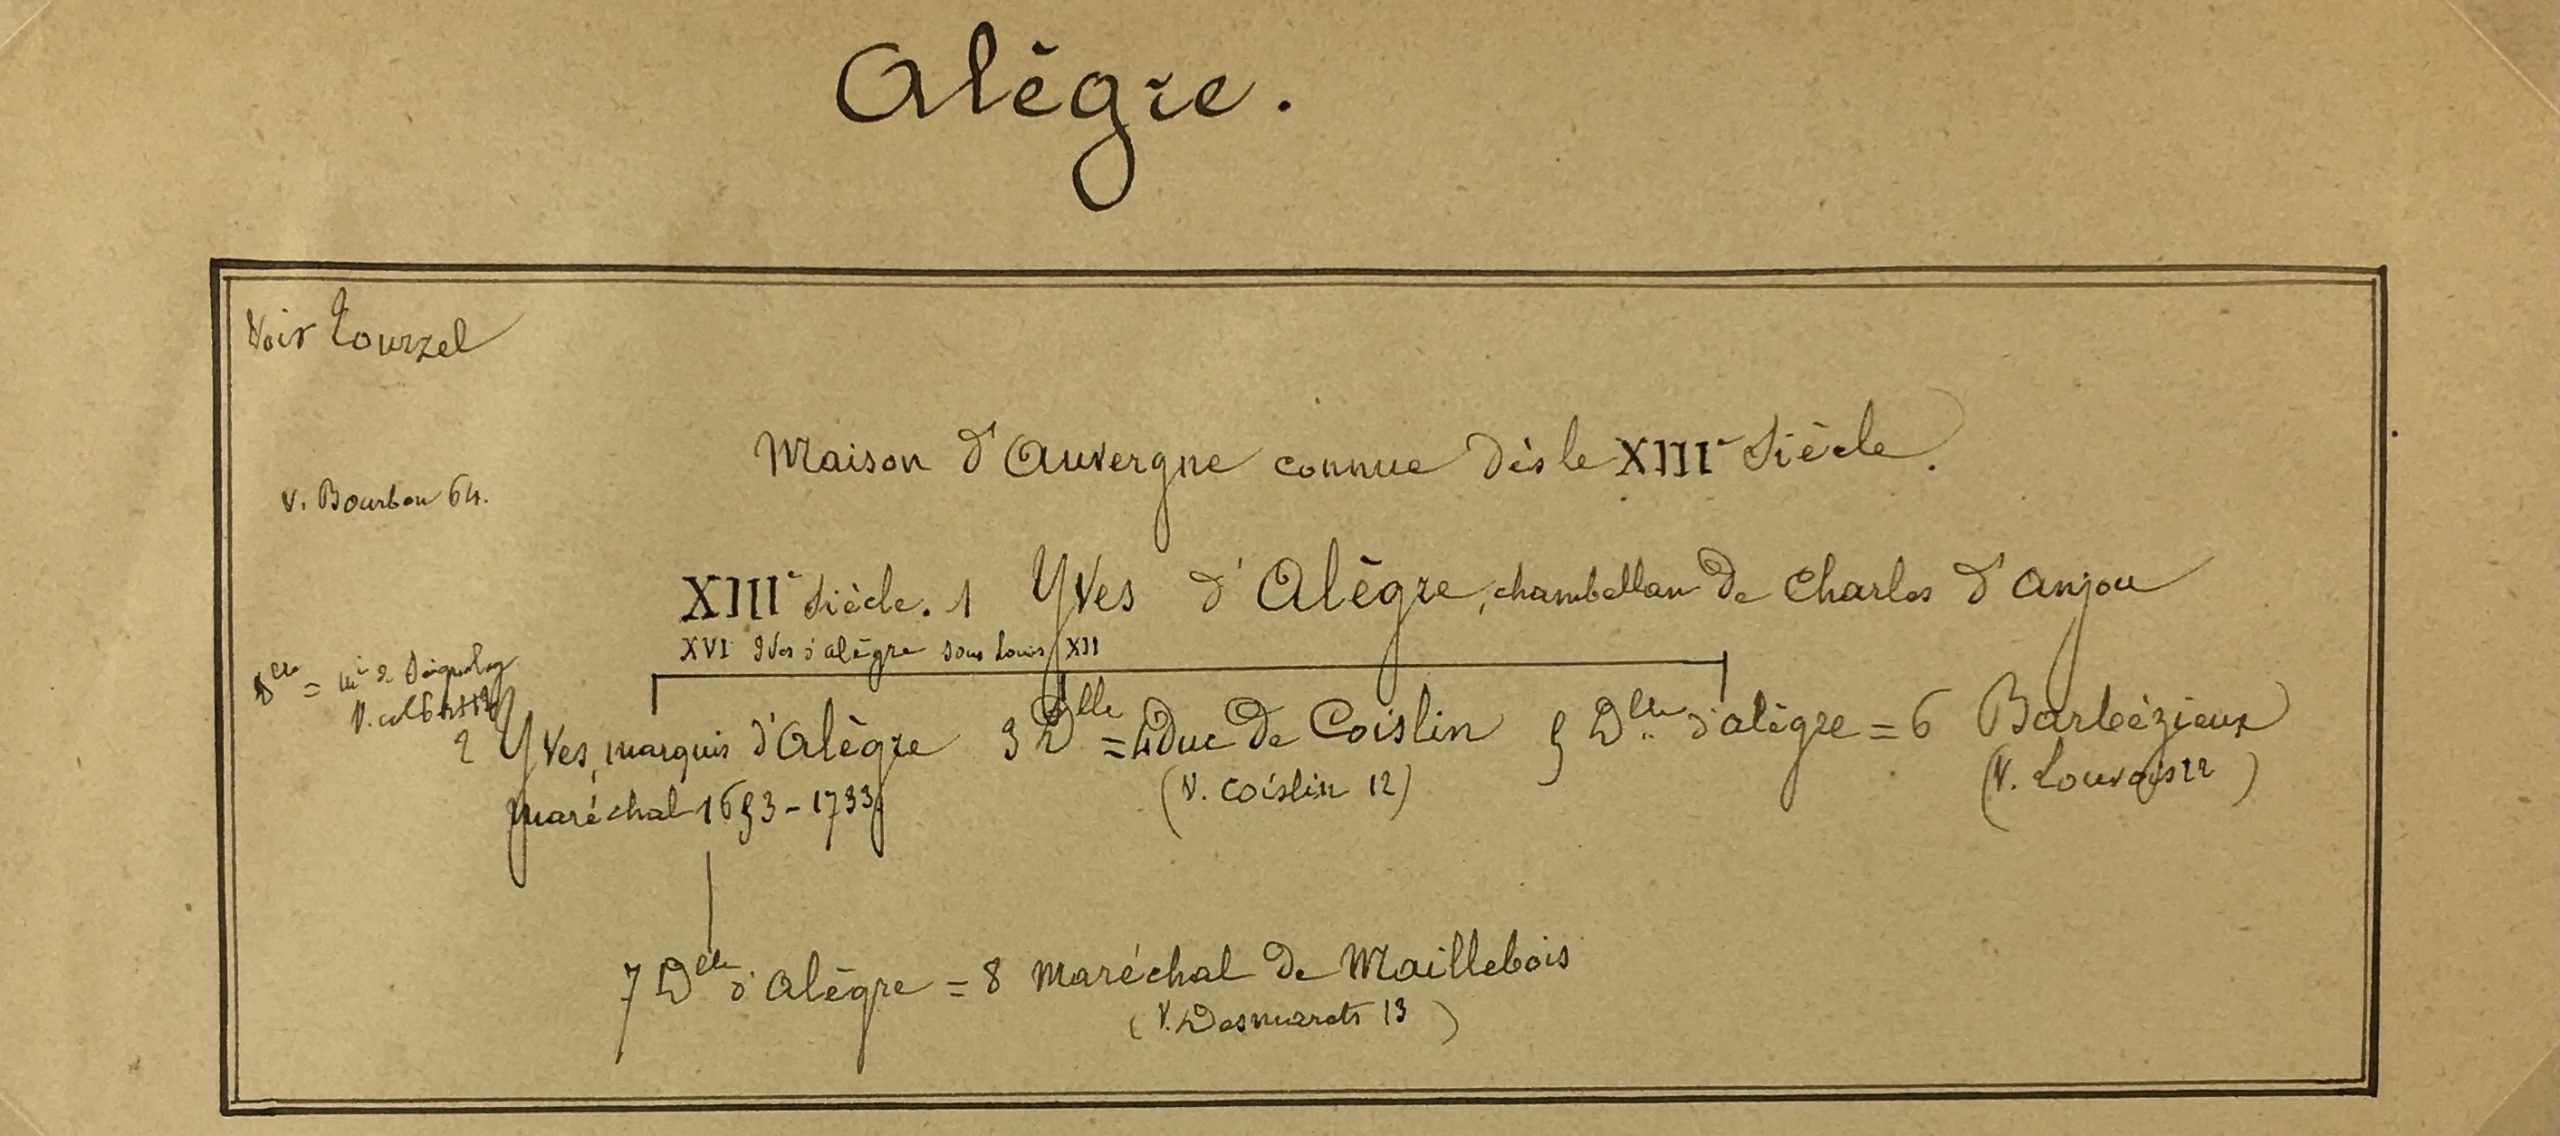 Alègre.
Voir Tourzel
Maison d'Auvergne connue dès le XIIIe Siècle.
V. Bourbon 64.
XIIIe Siècle. 1 Yves d'Alègre, chambellan de Charles d'Anjou
XVI Yves d'alègre sous Louis XII
Delle = Mis de Seignelay
V. Colbert
2 Yves, marquis d'Alègre 3 Dlle = 4 Duc de Coislin 5 Delle d'alègre = 6 Barbézieux
maréchal 1653-1733 (V. Coislin 12) (V. Louvois 12)
7 Delle d'Alègre = 8 Maréchal de Maillebois
(V. Desmarets 13)